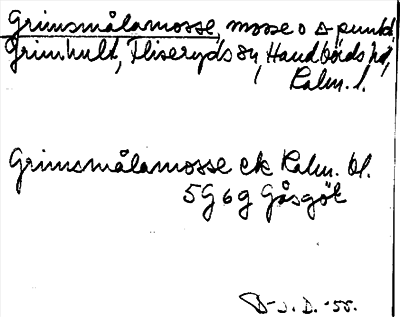 Grimsmålamosse, mosse o △ punkt,
Grimhult, Fliseryds sn, Handbörds hd,
Kalm. l.
Grimsmålamosse ek Kalm. bl.
5G6g Gåsgöl
D-J. D. -55.